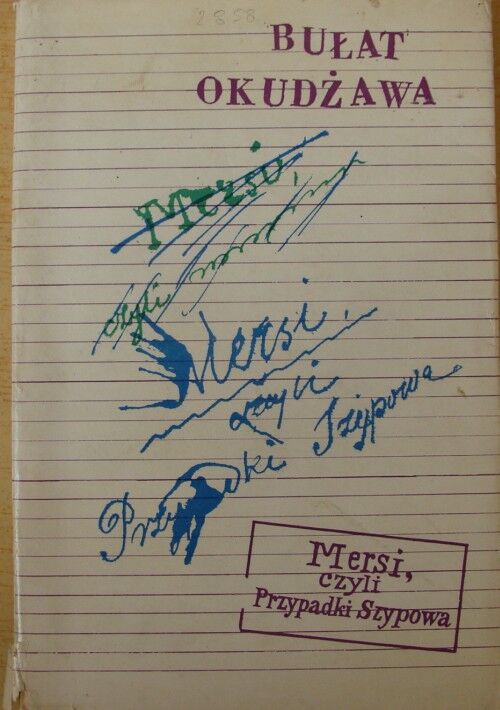 2858
BUŁAT
OKUDŻAWA
Mersi,
czyli
Mersi,
czyli
Przypadki Szypowa
Mersi,
czyli
Przypadki Szypowa